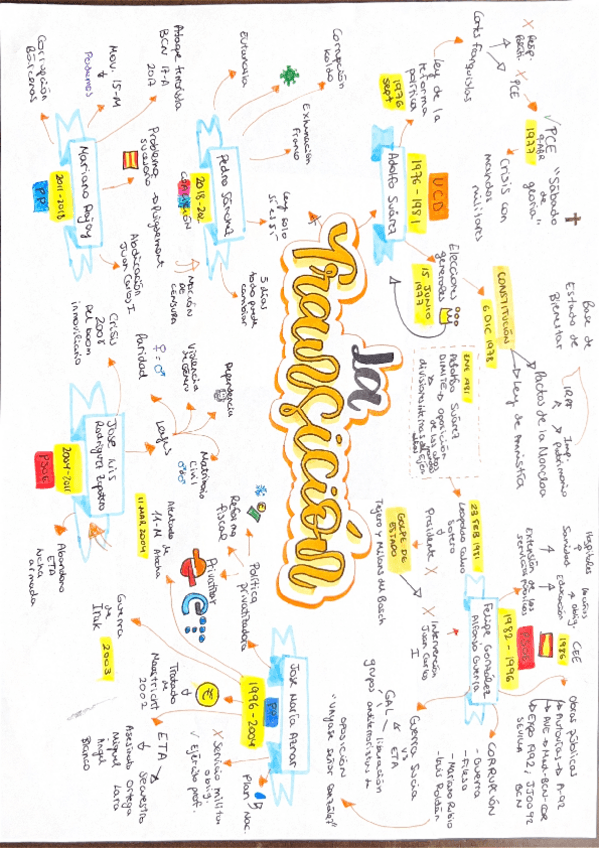 La
Transición
X Resp.
Polít.
X PCE
Cortes franquistas
Ley de la
reforma
política
1976
sept
✓PCE
9 ABR
1977
"Sábado
de
gloria"
Crisis con
mandos
militares
UCD
1976-1981
Adolfo Suárez
Elecciones
generales
15 JUNIO
1977
CONSTITUCIÓN
6 DIC 1978
Base de
Estado de
Bienestar
IRPF
Imp.
patrimonio
Pactos de la Moncloa
Ley de amnistía
ENE 1981
Adolfo Suárez
DIMITE → oposición
de los altos
divisiones internas
23 FEB 1981
Leopoldo Calvo
Sotelo
Presidente X
GOLPE DE
ESTADO
Tejero y Milans del Bosch
X Intervención
Juan Carlos
I
Hospitales
Sanidad
Educación
oblig.
Extensión de los
servicios públicos
CEE
1986
PSOE
1982-1996
Felipe González
Alfonso Guerra
Obras públicas
Autovías → A-92
AVE → MAD-BCN-COR
SEVILLA
EXPO 1992, JJOO 92
BCN
CORRUPCIÓN
- Guerra
- Filesa
- Mariano Rubio
- Luis Roldán
Guerra Sucia
vs
ETA
GAL
liberación
grupos antiterroristas
oposición
"Váyase señor González"
José María Aznar
PP
1996-2004
Plan
Nac.
X Servicio militar
oblig.
✓ Ejército prof.
ETA
Secuestro
Ortega
Lara
Asesinato
Miguel
Ángel
Blanco
Tratado
de
Maastricht
2002
Guerra
de
Irak
2003
Política
privatizadora
Privatizar
Reforma
fiscal
Atentado de
11-M Atocha
11 MAR 2004
José Luis
Rodríguez Zapatero
2004-2011
PSOE
Leyes
Dependencia
Matrimonio
civil
Violencia
de género
Paridad
♀=♂
Crisis
2008
Del boom
inmobiliario
Abandono
ETA
lucha
armada
Pedro Sánchez
COALICIÓN
Corrupción
Koldo
Eutanasia
Exhumación
Franco
Ley solo
sí es sí
5 días
todo puede
cambiar
Moción
de
censura
Mariano Rajoy
2011-2018
PP
Ataque terrorista
BCN 17-A
2017
Mov. 15-M
Podemos
Corrupción
Bárcenas
Problema
sucesorio
→Puigdemont
Abdicación
Juan Carlos I